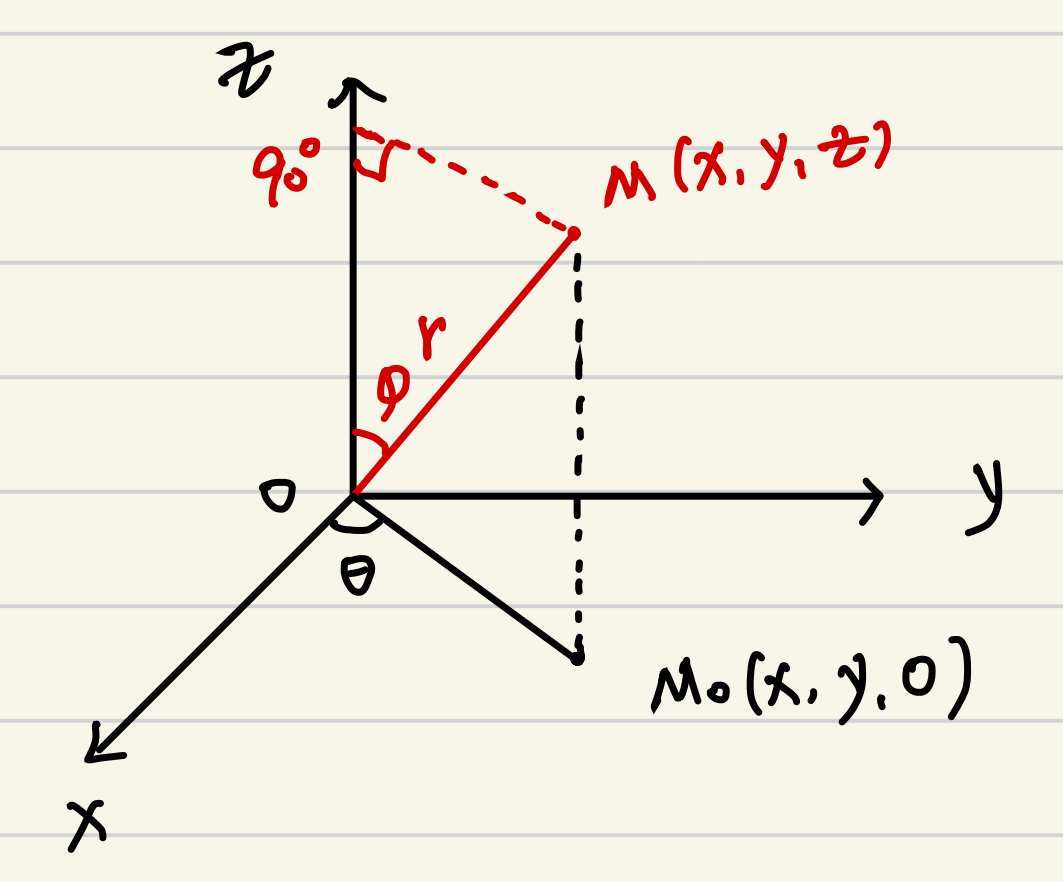 z
90°
M(x,y,z)
r
φ
O
y
θ
M₀(x,y,0)
x